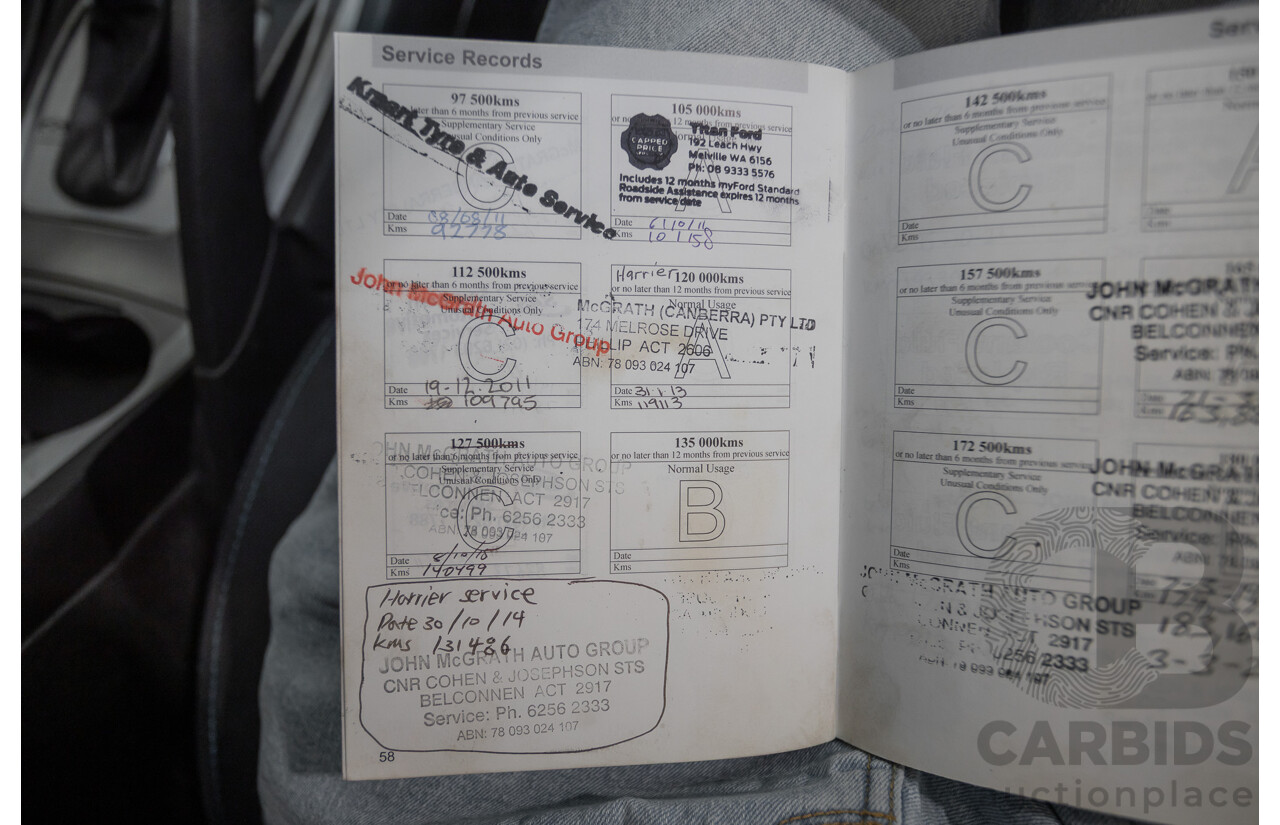 Service Records
97 500kms
or no later than 6 months from previous service
Supplementary Service
Unusual Conditions Only
C
Kmart Tyre & Auto Service
Date 08/08/11
Kms 92778
105 000kms
or no 12 months from previous service
A
CAPPED
PRICE
Titan Ford
192 Leach Hwy
Melville WA 6156
Ph: 08 9333 5576
Includes 12 months myFord Standard
Roadside Assistance expires 12 months
from service date
Date
Kms 101158
112 500kms
or no later than 6 months from previous service
Supplementary Service
Unusual Conditions Only
C
John McGrath Auto Group
Date 19-12-2011
Kms 109795
Harrier 120 000kms
or no later than 12 months from previous service
Normal Usage
A
McGRATH (CANBERRA) PTY LTD
174 MELROSE DRIVE
PHILLIP ACT 2606
ABN: 78 093 024 107
Date 31.1.13
Kms 119113
127 500kms
or no later than 6 months from previous service
Supplementary Service
Unusual Conditions Only
C
JOHN McGRATH AUTO GROUP
COHEN & JOSEPHSON STS
ELCONNEN ACT 2917
ce: Ph. 6256 2333
ABN: 78 093 024 107
Date
Kms 140499
135 000kms
or no later than 12 months from previous service
Normal Usage
B
Date
Kms
Harrier service
Date 30/10/14
kms 131486
JOHN McGRATH AUTO GROUP
CNR COHEN & JOSEPHSON STS
BELCONNEN ACT 2917
Service: Ph. 6256 2333
ABN: 78 093 024 107
58
142 500kms
or no later than 6 months from previous service
Supplementary Service
Unusual Conditions Only
C
Date
Kms
157 500kms
or no later than 6 months from previous service
Supplementary Service
Unusual Conditions Only
C
Date
Kms
JOHN McGRATH
CNR COHEN & J
BELCONNEN
Service: Ph.
172 500kms
or no later than 6 months from previous service
Supplementary Service
Unusual Conditions Only
C
Date
Kms
JOHN McGRATH
CNR COHEN &
BELCONNEN
JOHN McGRATH AUTO GROUP
N & JOSEPHSON STS
CONNEN ACT 2917
6256 2333
ABN: 78 093 024 107
CARBIDS
auctionplace